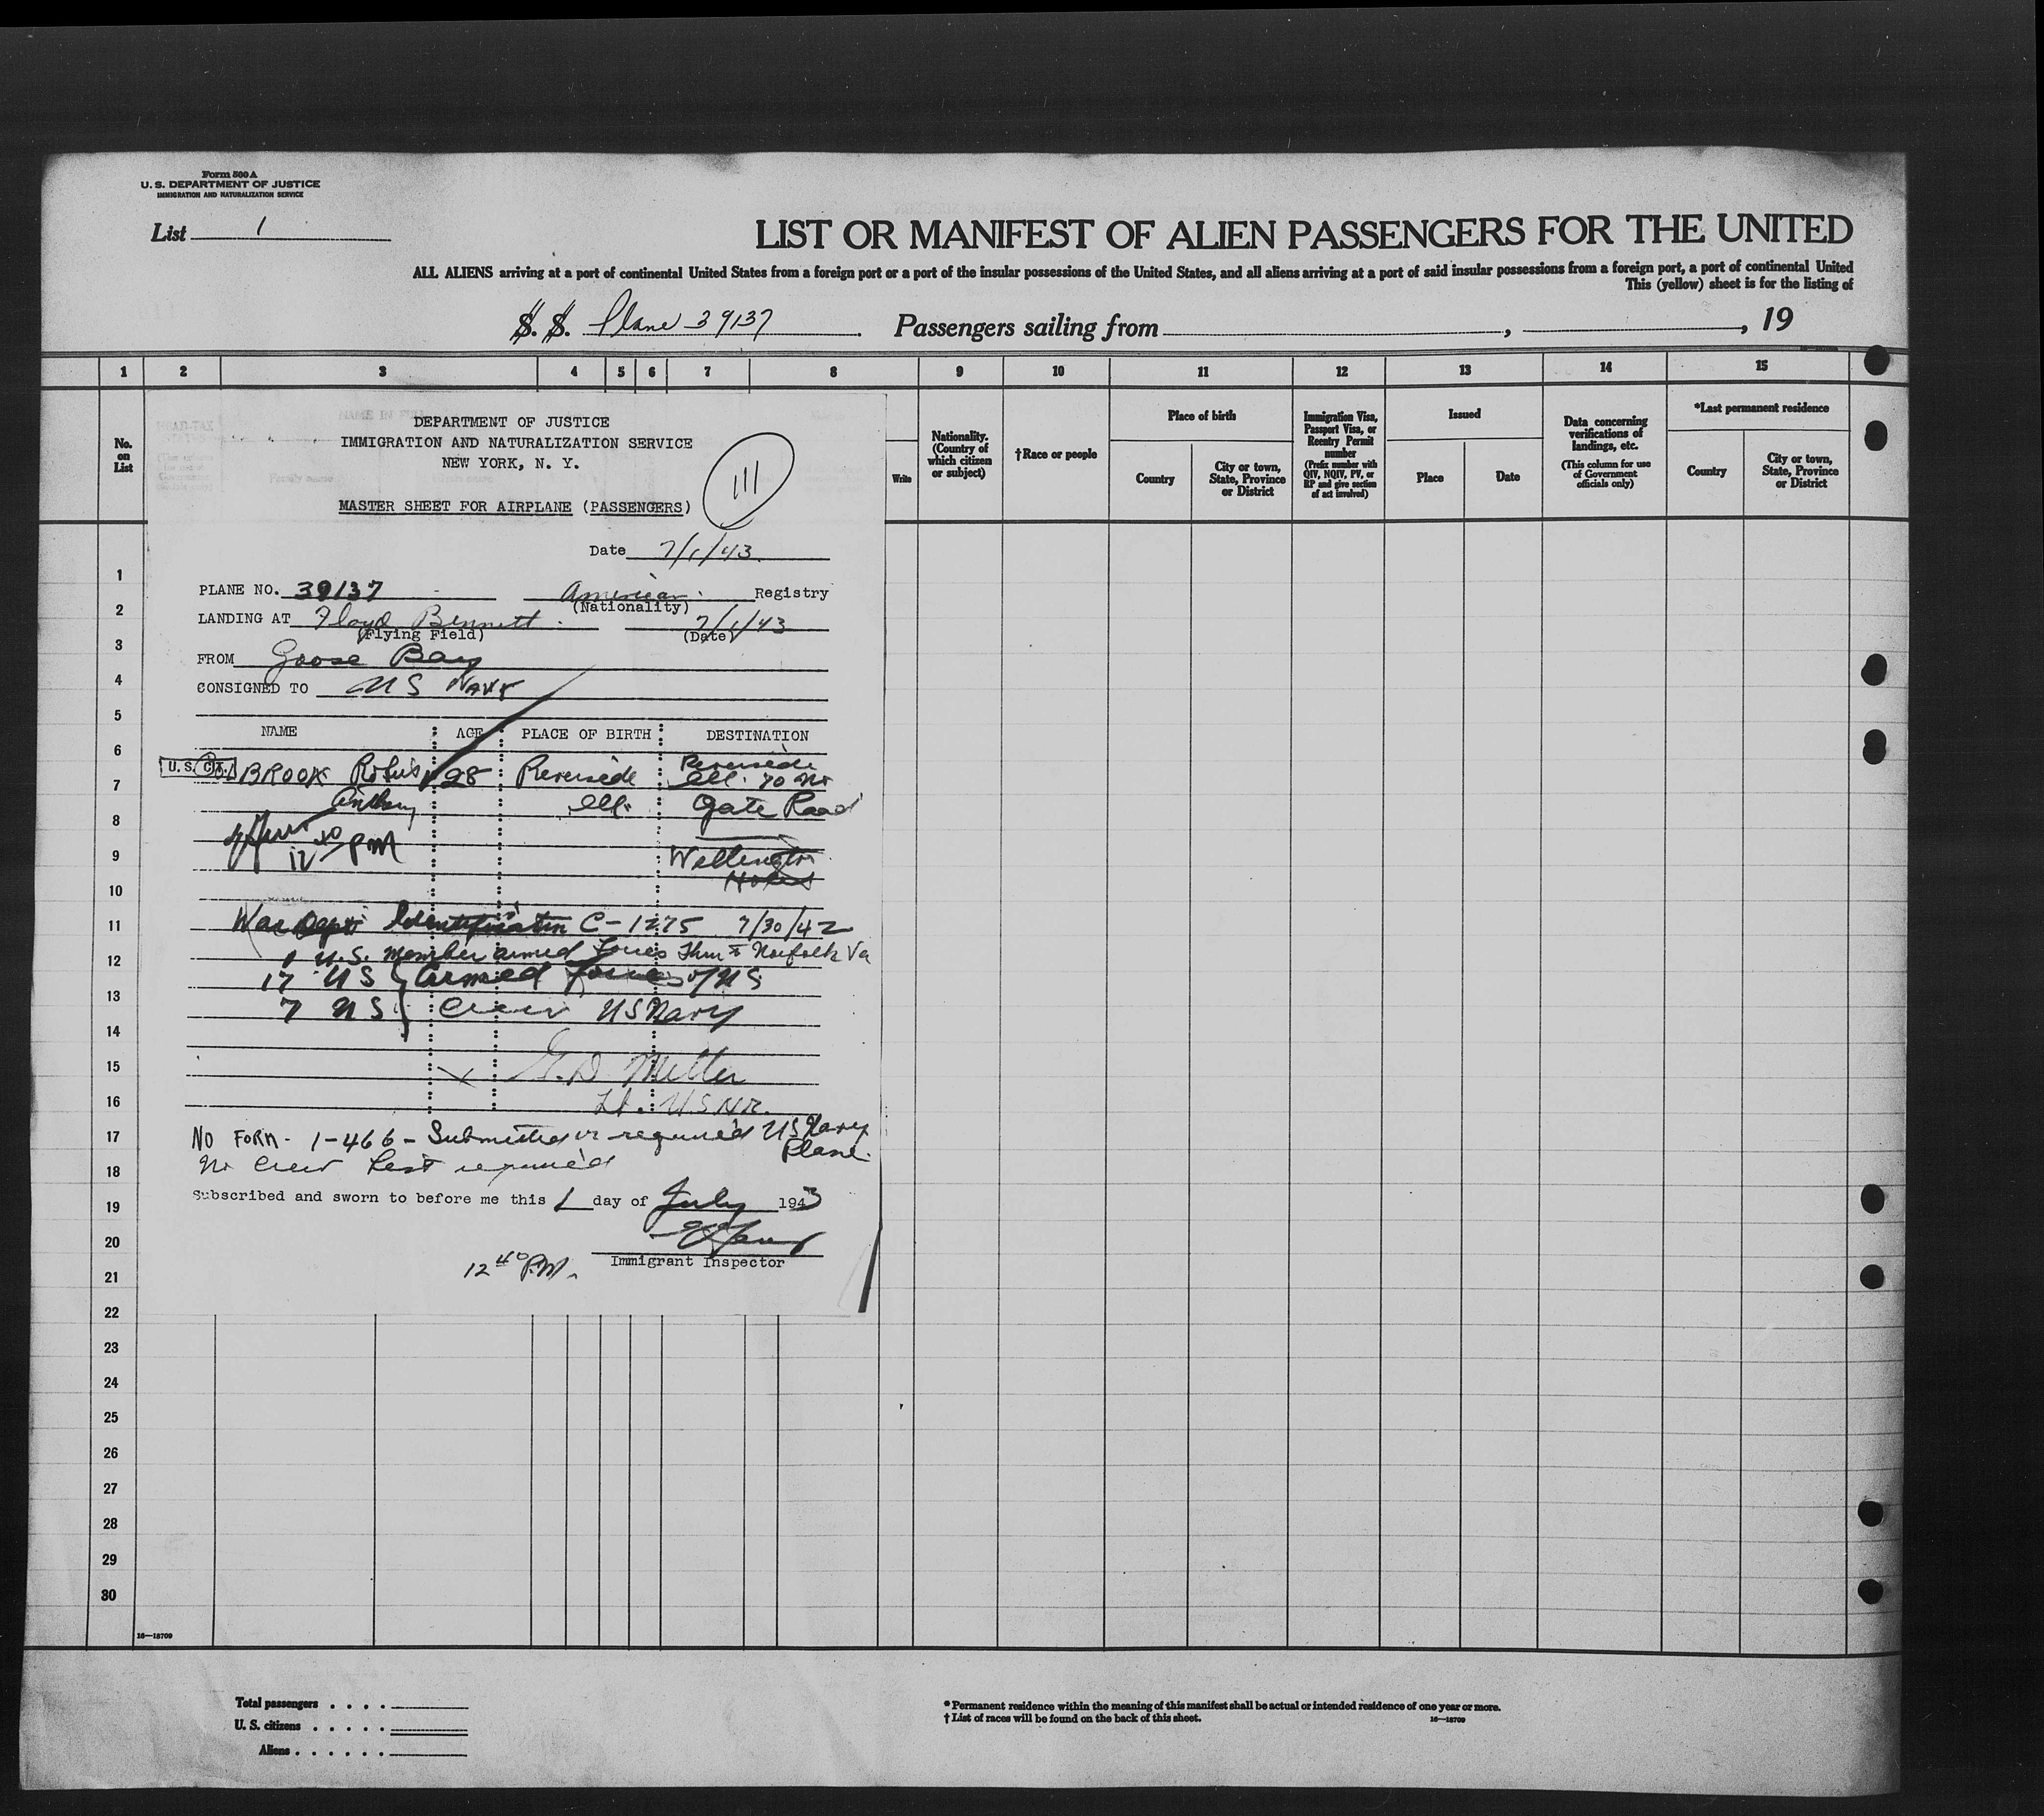 Form 500 A
U. S. DEPARTMENT OF JUSTICE
IMMIGRATION AND NATURALIZATION SERVICE
List 1
LIST OR MANIFEST OF ALIEN PASSENGERS FOR THE UNITED
ALL ALIENS arriving at a port of continental United States from a foreign port or a port of the insular possessions of the United States, and all aliens arriving at a port of said insular possessions from a foreign port, a port of continental United
This (yellow) sheet is for the listing of
S. S. Plane 39137. Passengers sailing from , , 19
1 2 3 4 5 6 7 8 9 10 11 12 13 14 15
No. on List
Write
Nationality. (Country of which citizen or subject)
†Race or people
Place of birth
Country
City or town, State, Province or District
Immigration Visa, Passport Visa, or Reentry Permit number
(Prefix number with QIV, NQIV, PV, or RP and give section of act involved)
Issued
Place
Date
Data concerning verifications of landings, etc.
(This column for use of Government officials only)
*Last permanent residence
Country
City or town, State, Province or District
DEPARTMENT OF JUSTICE
IMMIGRATION AND NATURALIZATION SERVICE
NEW YORK, N. Y.
111
MASTER SHEET FOR AIRPLANE (PASSENGERS)
Date 7/1/43
PLANE NO. 39137 American Registry
(Nationality)
LANDING AT Floyd Bennett 7/1/43
(Flying Field) (Date)
FROM Goose Bay
CONSIGNED TO US NAVY
NAME AGE PLACE OF BIRTH DESTINATION
U.S. CIT. BROOK Rufus 28 Riverside Riverside
Ill. 70 No
Anthony Ill. Gate Road
12 PM
Wellington
Hotel
War Dept Identification C-1275 7/30/42
1 U.S. member armed forces Thru to Norfolk Va
17 US armed forces of US
7 US Crew US Navy
X G. D. Miller
Lt. USNR.
No FORM - I-466 - Submitted or required US Navy
Plane.
No crew list required
Subscribed and sworn to before me this 1 day of July 1943
Immigrant Inspector
12 40 P.M.
1
2
3
4
5
6
7
8
9
10
11
12
13
14
15
16
17
18
19
20
21
22
23
24
25
26
27
28
29
30
16—18709
Total passengers . . . .
U. S. citizens . . . . .
Aliens . . . . . .
* Permanent residence within the meaning of this manifest shall be actual or intended residence of one year or more.
† List of races will be found on the back of this sheet.
16—18709